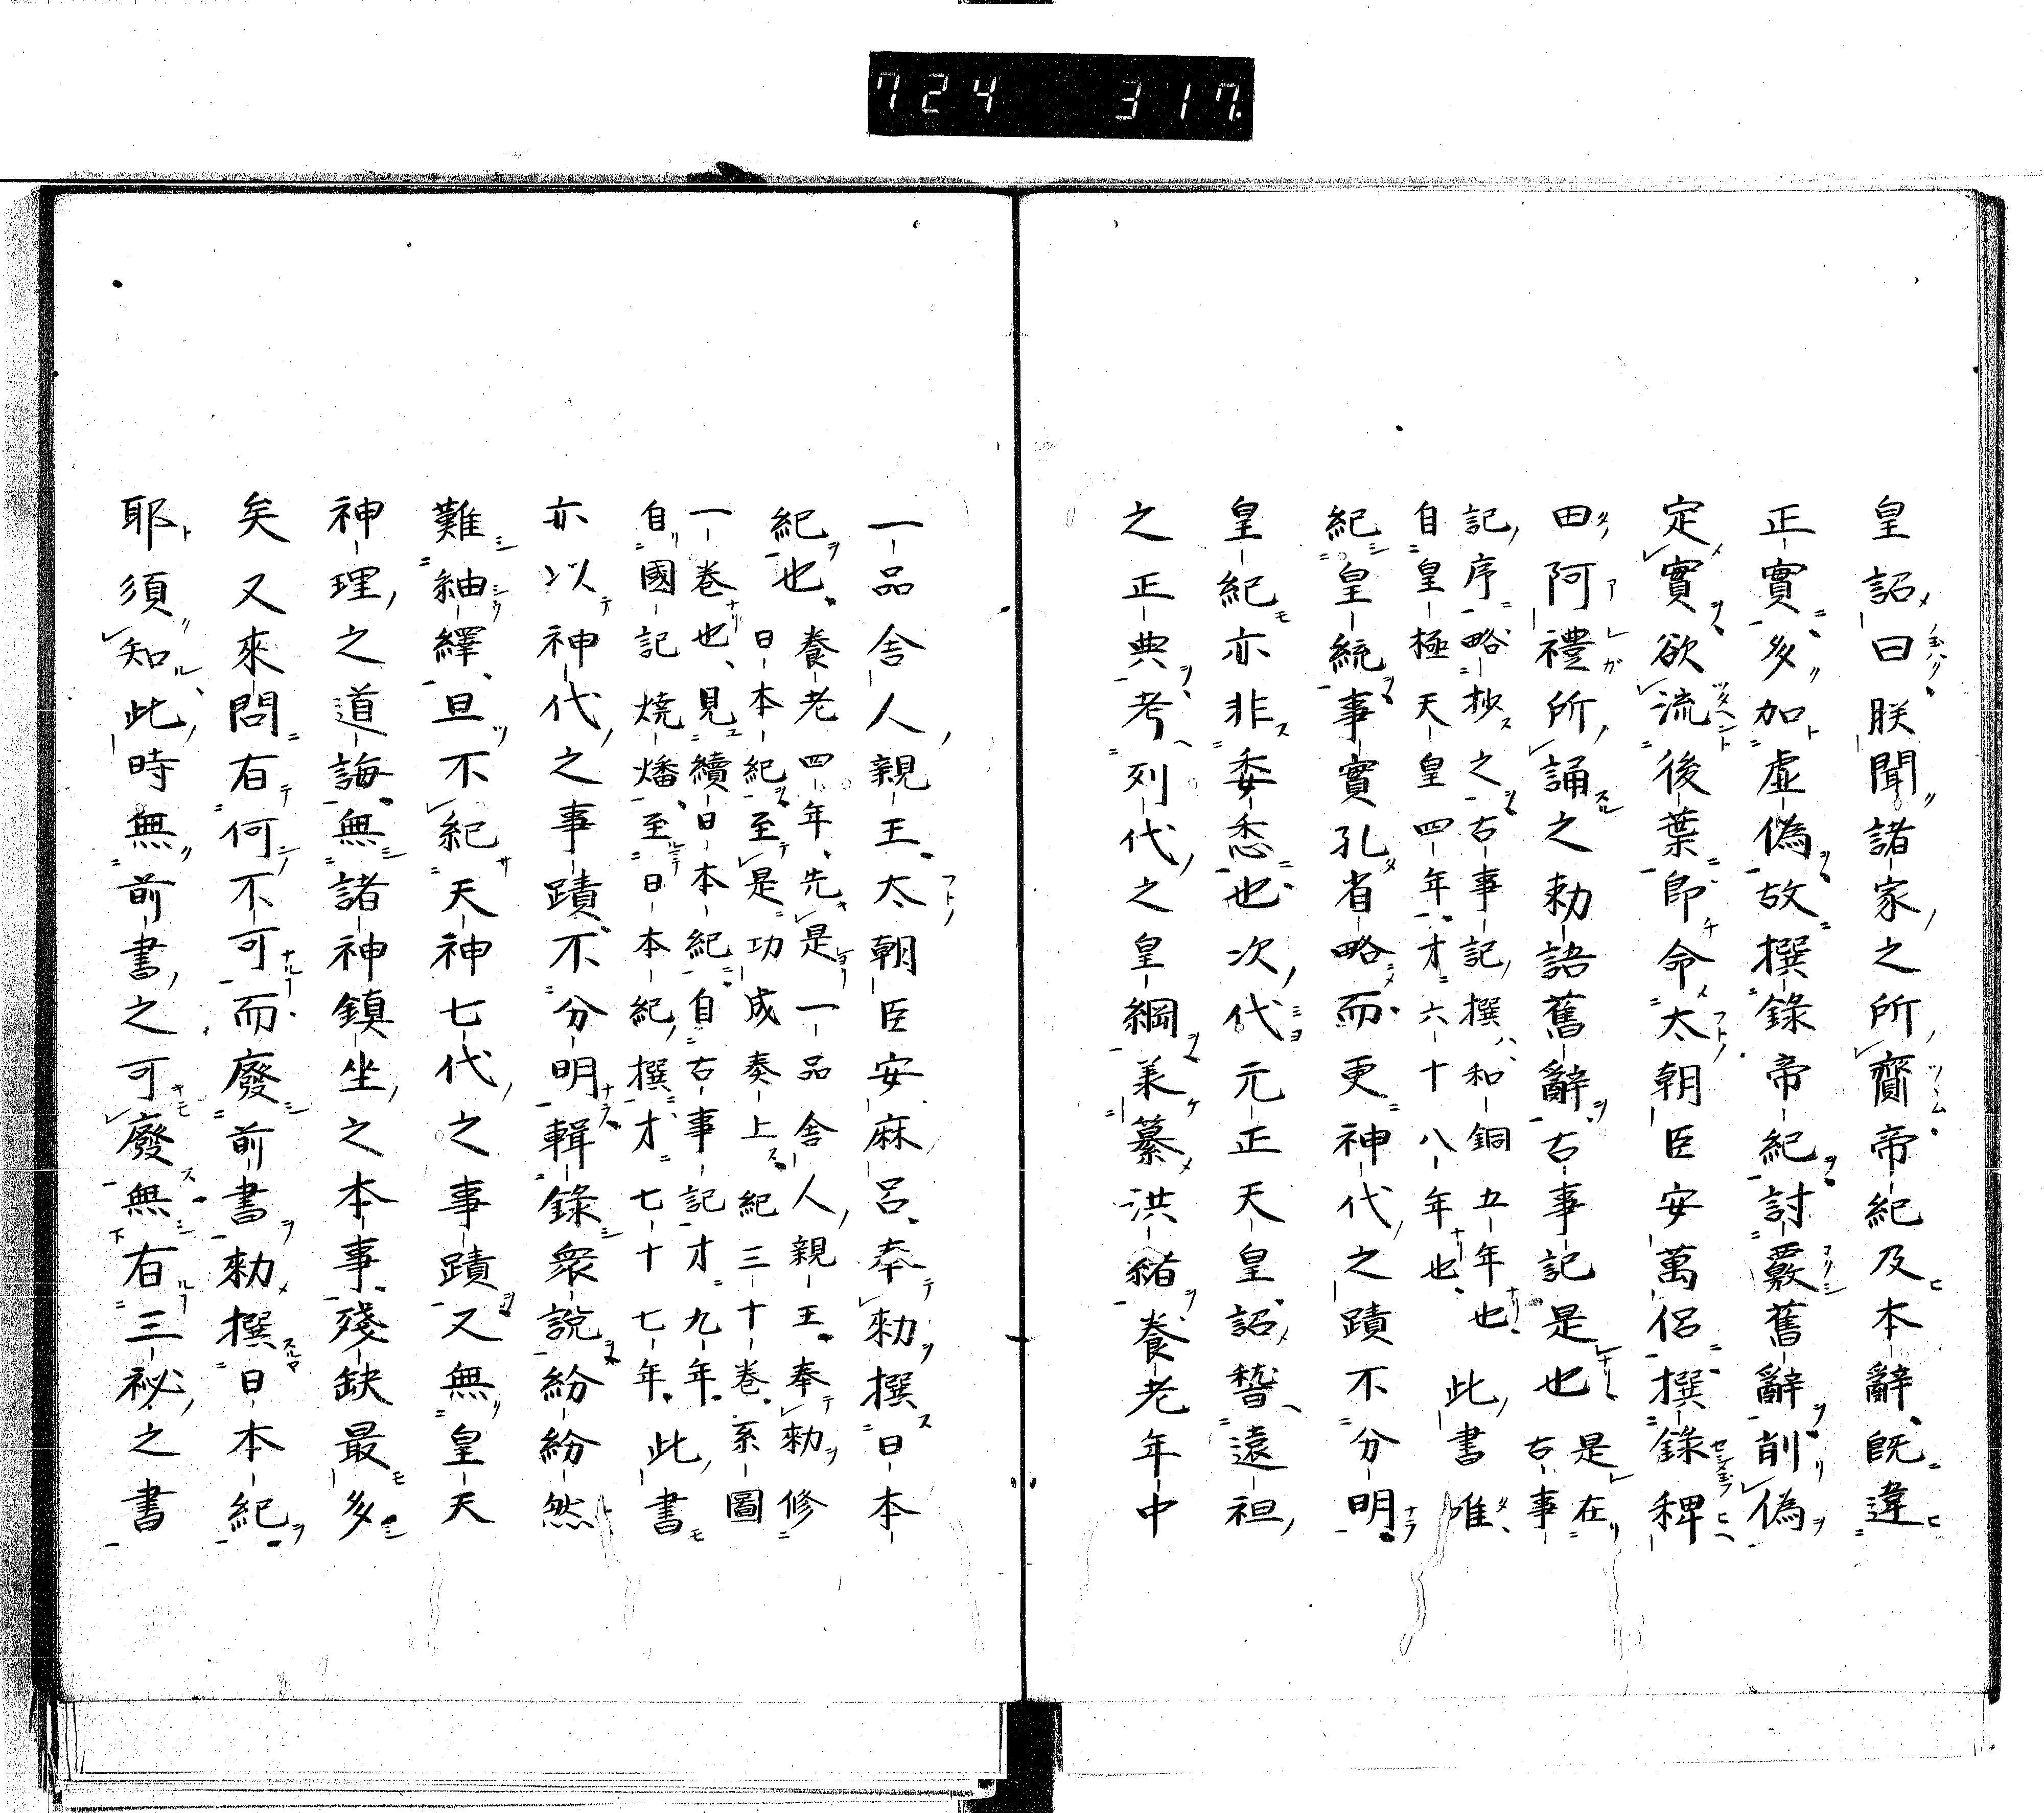 724 317.
皇詔曰朕聞諸家之所齎帝紀及本辭既違
正實多加虛偽故撰錄帝紀討覈舊辭削偽
定實欲流後葉即命太朝臣安萬侶撰錄稗
田阿禮所誦之勅語舊辭古事記是也是在古事
記序略抄之古事記撰和銅五年也此書唯
自皇極天皇四年才六十八年也
紀皇統事實孔省略而更神代之蹟不分明
皇紀亦非委悉也次代元正天皇詔嵆遠袒
之正典考列代之皇綱羕纂洪緒養老年中
一品舍人親王太朝臣安麻呂奉勅撰日本
紀也養老四年先是一品舍人親王奉勅修
日本紀至是功成奏上紀三十卷系圖
一卷也見續日本紀自古事記才九年
自國記燒燔至日本紀撰才七十七年此書
亦以神代之事蹟不分明輯錄衆說紛紛然
難紬繹且不紀天神七代之事蹟又無皇天
神理之道誨無諸神鎮坐之本事殘缺最多
矣又來問有何不可而廢前書勅撰日本紀
耶須知此時無前書之可廢無右三祕之書